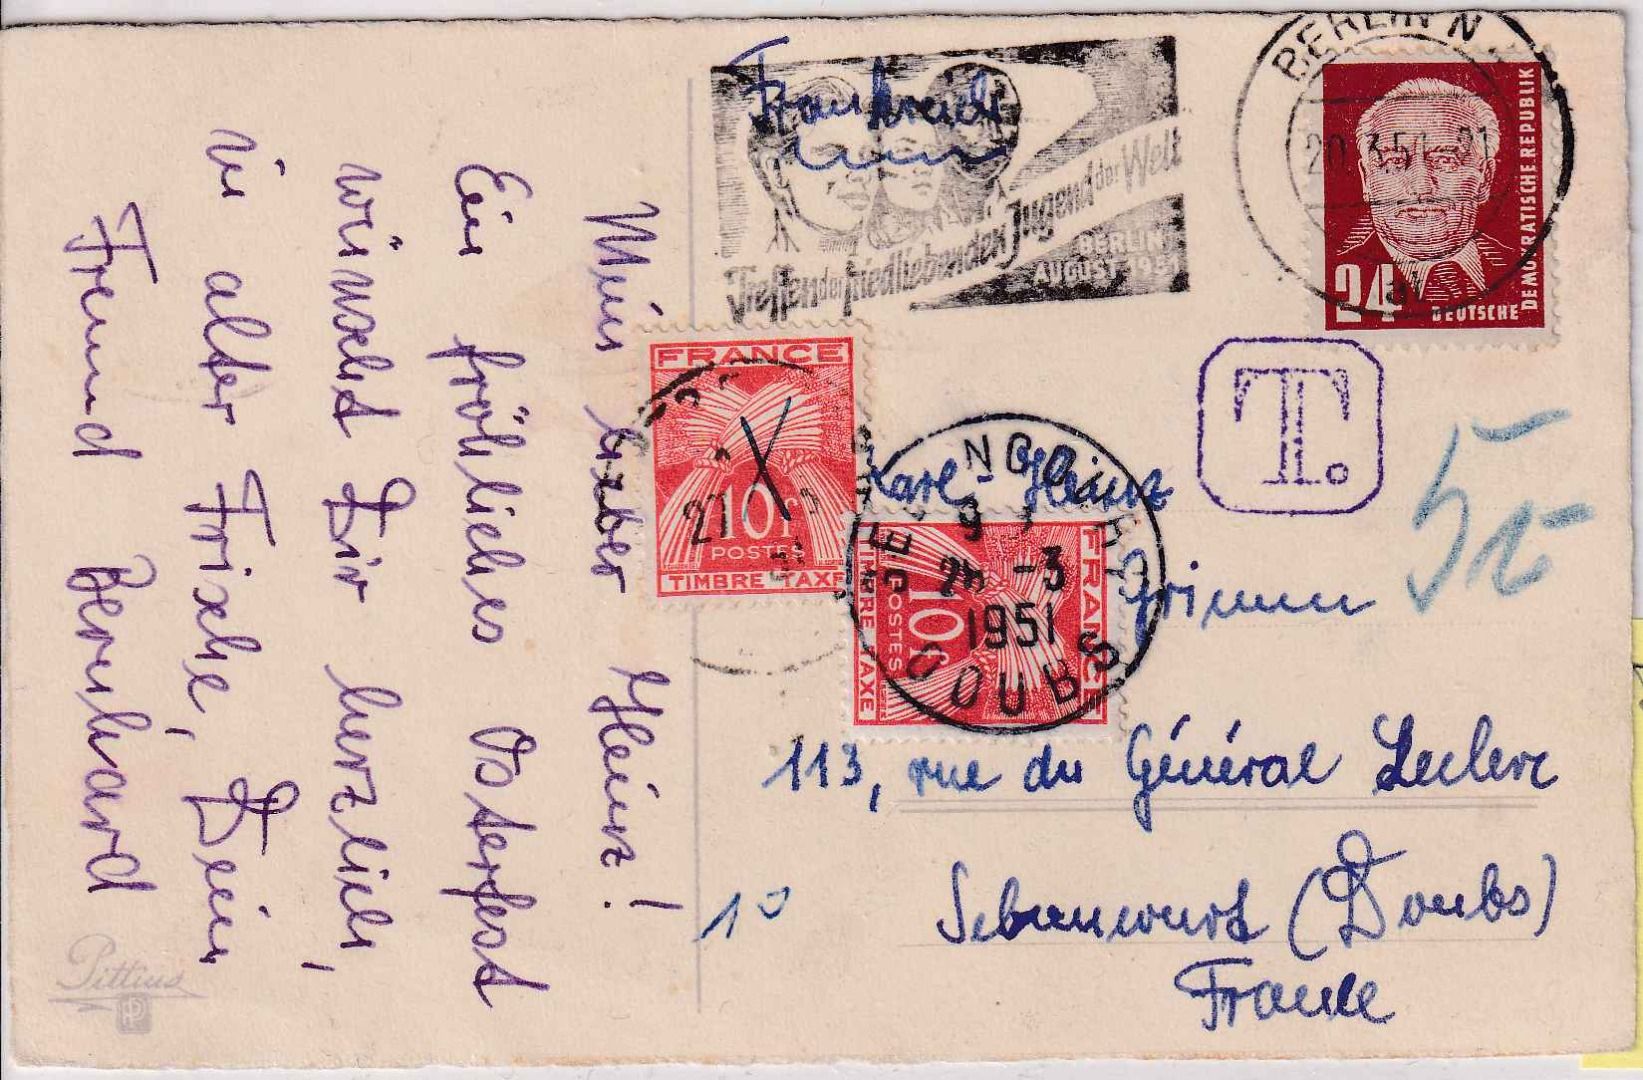 Mein lieber Heinz!
Ein fröhliches Osterfest
wünscht Dir herzlich,
in alter Frische, Dein
Freund Bernhard
Pittius
Frankreich
Treffen der friedliebenden Jugend der Welt
BERLIN
AUGUST 1951
BERLIN N
20.3.51-21
24
DEUTSCHE
DEMOKRATISCHE REPUBLIK
T.
FRANCE
10f
POSTES
TIMBRE TAXE
27
51
FRANCE
10f
POSTES
TIMBRE TAXE
-3
1951
Karl-Heinz
Grimm
113, rue du Général Leclerc
Seloncourt (Doubs)
France
10